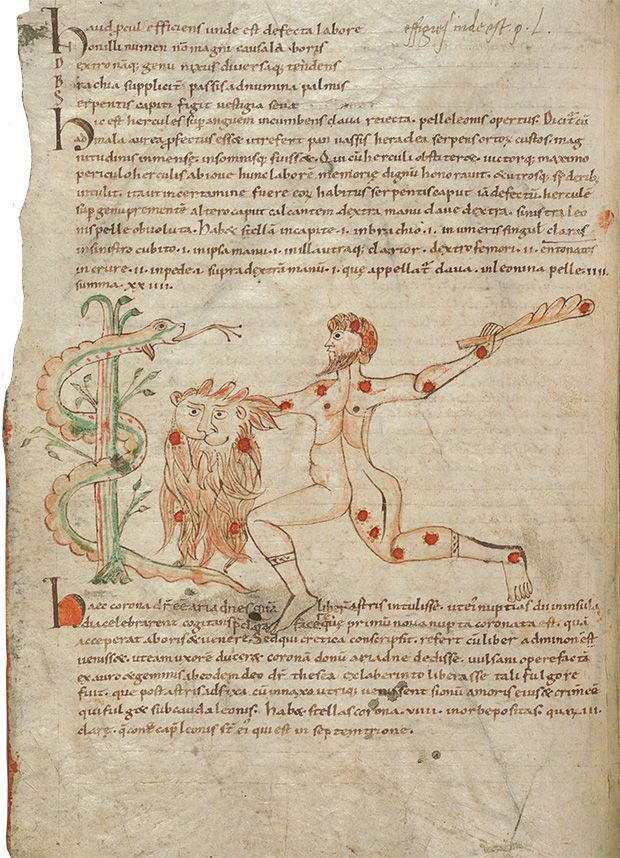 haud pcul efficiens unde est defecta labore
effigies inde est
honilli numen nō magni causa laboris
Dextronaq; genu nixus diversaq; tendens
Brachia supplicit passis adnumina palmis
Serpentis capiti figit vestigia
hic est hercules sup anguem incumbens clava reiecta. pelle leonis opertus. Dicit cū
admala aurea pfectus esse utrefert pan vassis heraclea serpens ortorū custos. mag
nitudinis inmense & insomnisq; fuisse & cū herculi obstitere. victorq; maximo
periculo herculis ab iove hunc labore memorie dignū honoravit. &utrosq;
intulit. ita ut incertamine fuere habitus serpentis caput iā defectū. hercule
sup genu premente altero caput calcantem. dextra manu clave dextra. sinistra leo
nis pelle obvoluta. habe stellā incapite. i. inbrachio. i. in umeris singul claras
insinistro cubito. i. in ipsa manu. i. in illa utraq; clarior. dextro femori. ii.
in crure. ii. inpede. i. supra dextrā manu. i. que appellat clava. in leonina pelle. iiii.
summa. xx iiii.
haec corona dr̄ ariadnes liber astris intulisse. ut ei nuptias di in insula
dia celebrarent cogitans facere que primū nova nupta coronata est. quā
acceperat aboris & venere. Sed qui cretica conscripsit. refert cū liber adminon
venisse. ut eam uxorē ducere coronā donū ariadne dedisse. vulcani opere factā
ex auro & gemmis ab eodem deo dr̄ thesea ex laberinto liberasse tali fulgore
fuit. que post astris adfixa. cū in naxo utriq; venissent signū amoris
qui fulg& sub cauda leonis. habe stellas corona. viiii. in orbe positas. quar iii
clare. capt leonis st ei qui est in septemtrione.